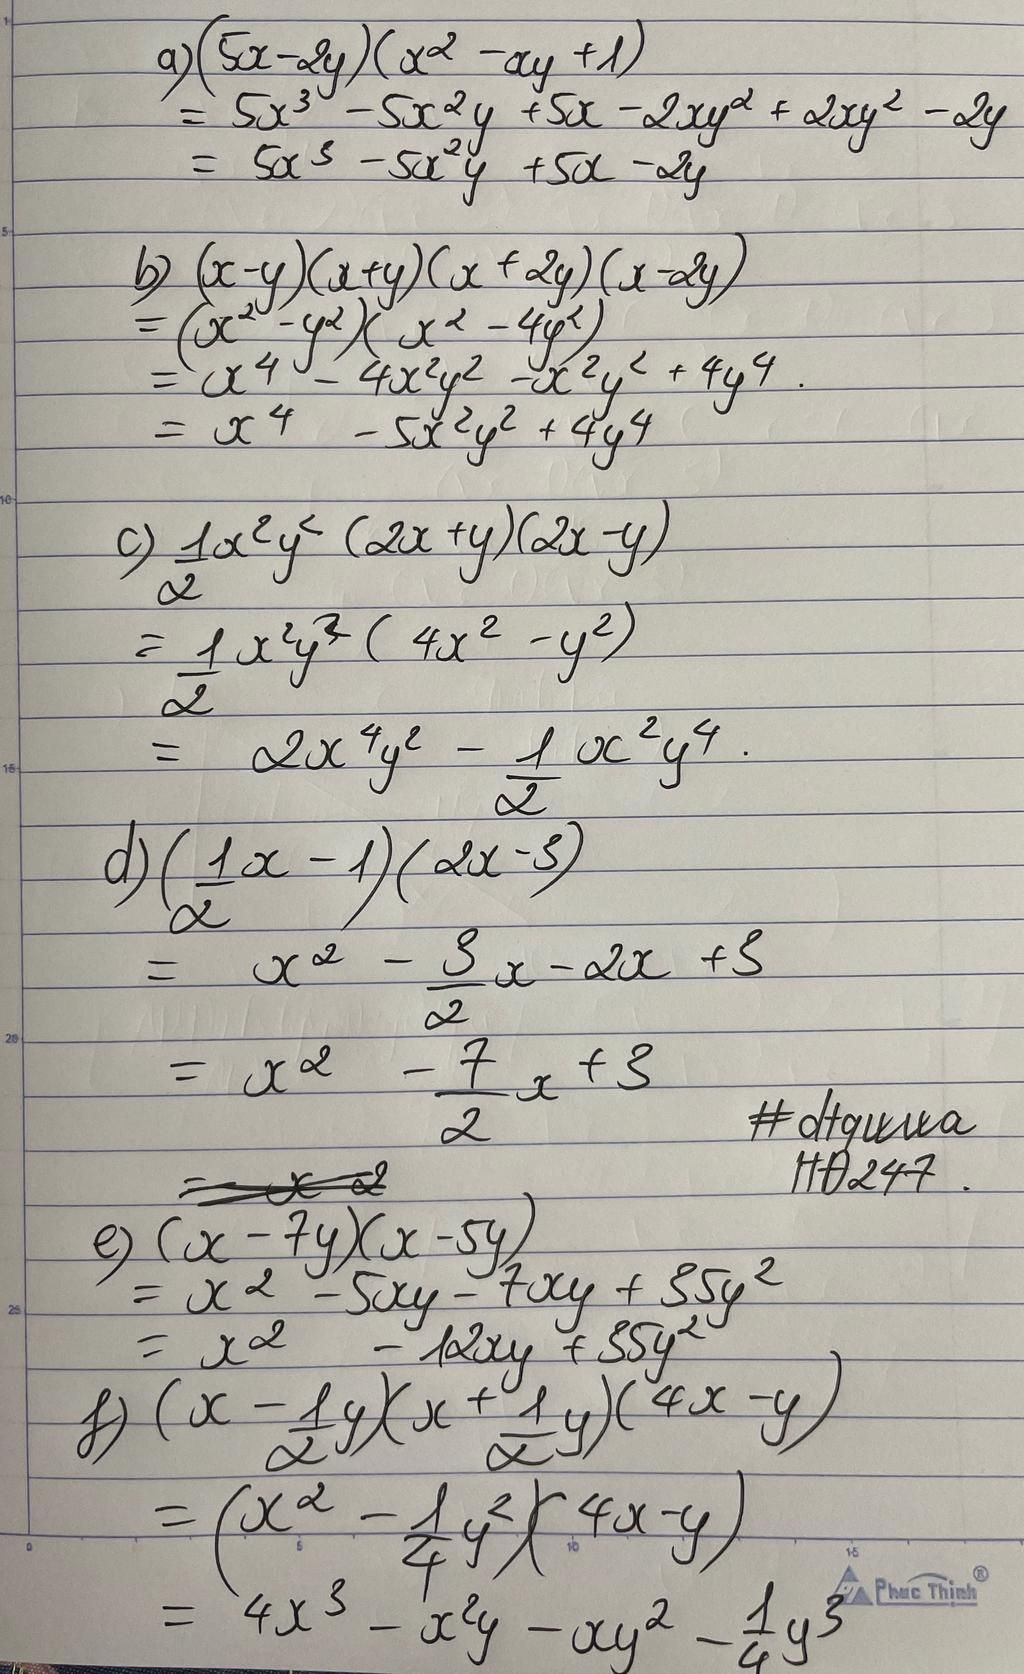 a) (5x-2y)(x² -xy +1)
= 5x³ -5x²y +5x -2xy² + 2xy² -2y
= 5x³ -5x²y +5x -2y
b) (x-y)(x+y)(x+2y)(x-2y)
= (x² -y²)(x² -4y²)
= x⁴ - 4x²y² -x²y² +4y⁴.
= x⁴ -5x²y² +4y⁴
c) 1/2 x²y² (2x+y)(2x-y)
= 1/2 x²y² (4x² -y²)
= 2x⁴y² - 1/2 x²y⁴.
d) (1/2 x - 1)(2x-3)
= x² - 3/2 x - 2x +3
= x² - 7/2 x +3
e) (x-7y)(x-5y)
= x² -5xy -7xy +35y²
= x² -12xy +35y²
f) (x - 1/2 y)(x + 1/2 y)(4x-y)
= (x² - 1/4 y²)(4x-y)
= 4x³ - x²y - xy² - 1/4 y³
HĐ247.
Phuc Thinh®